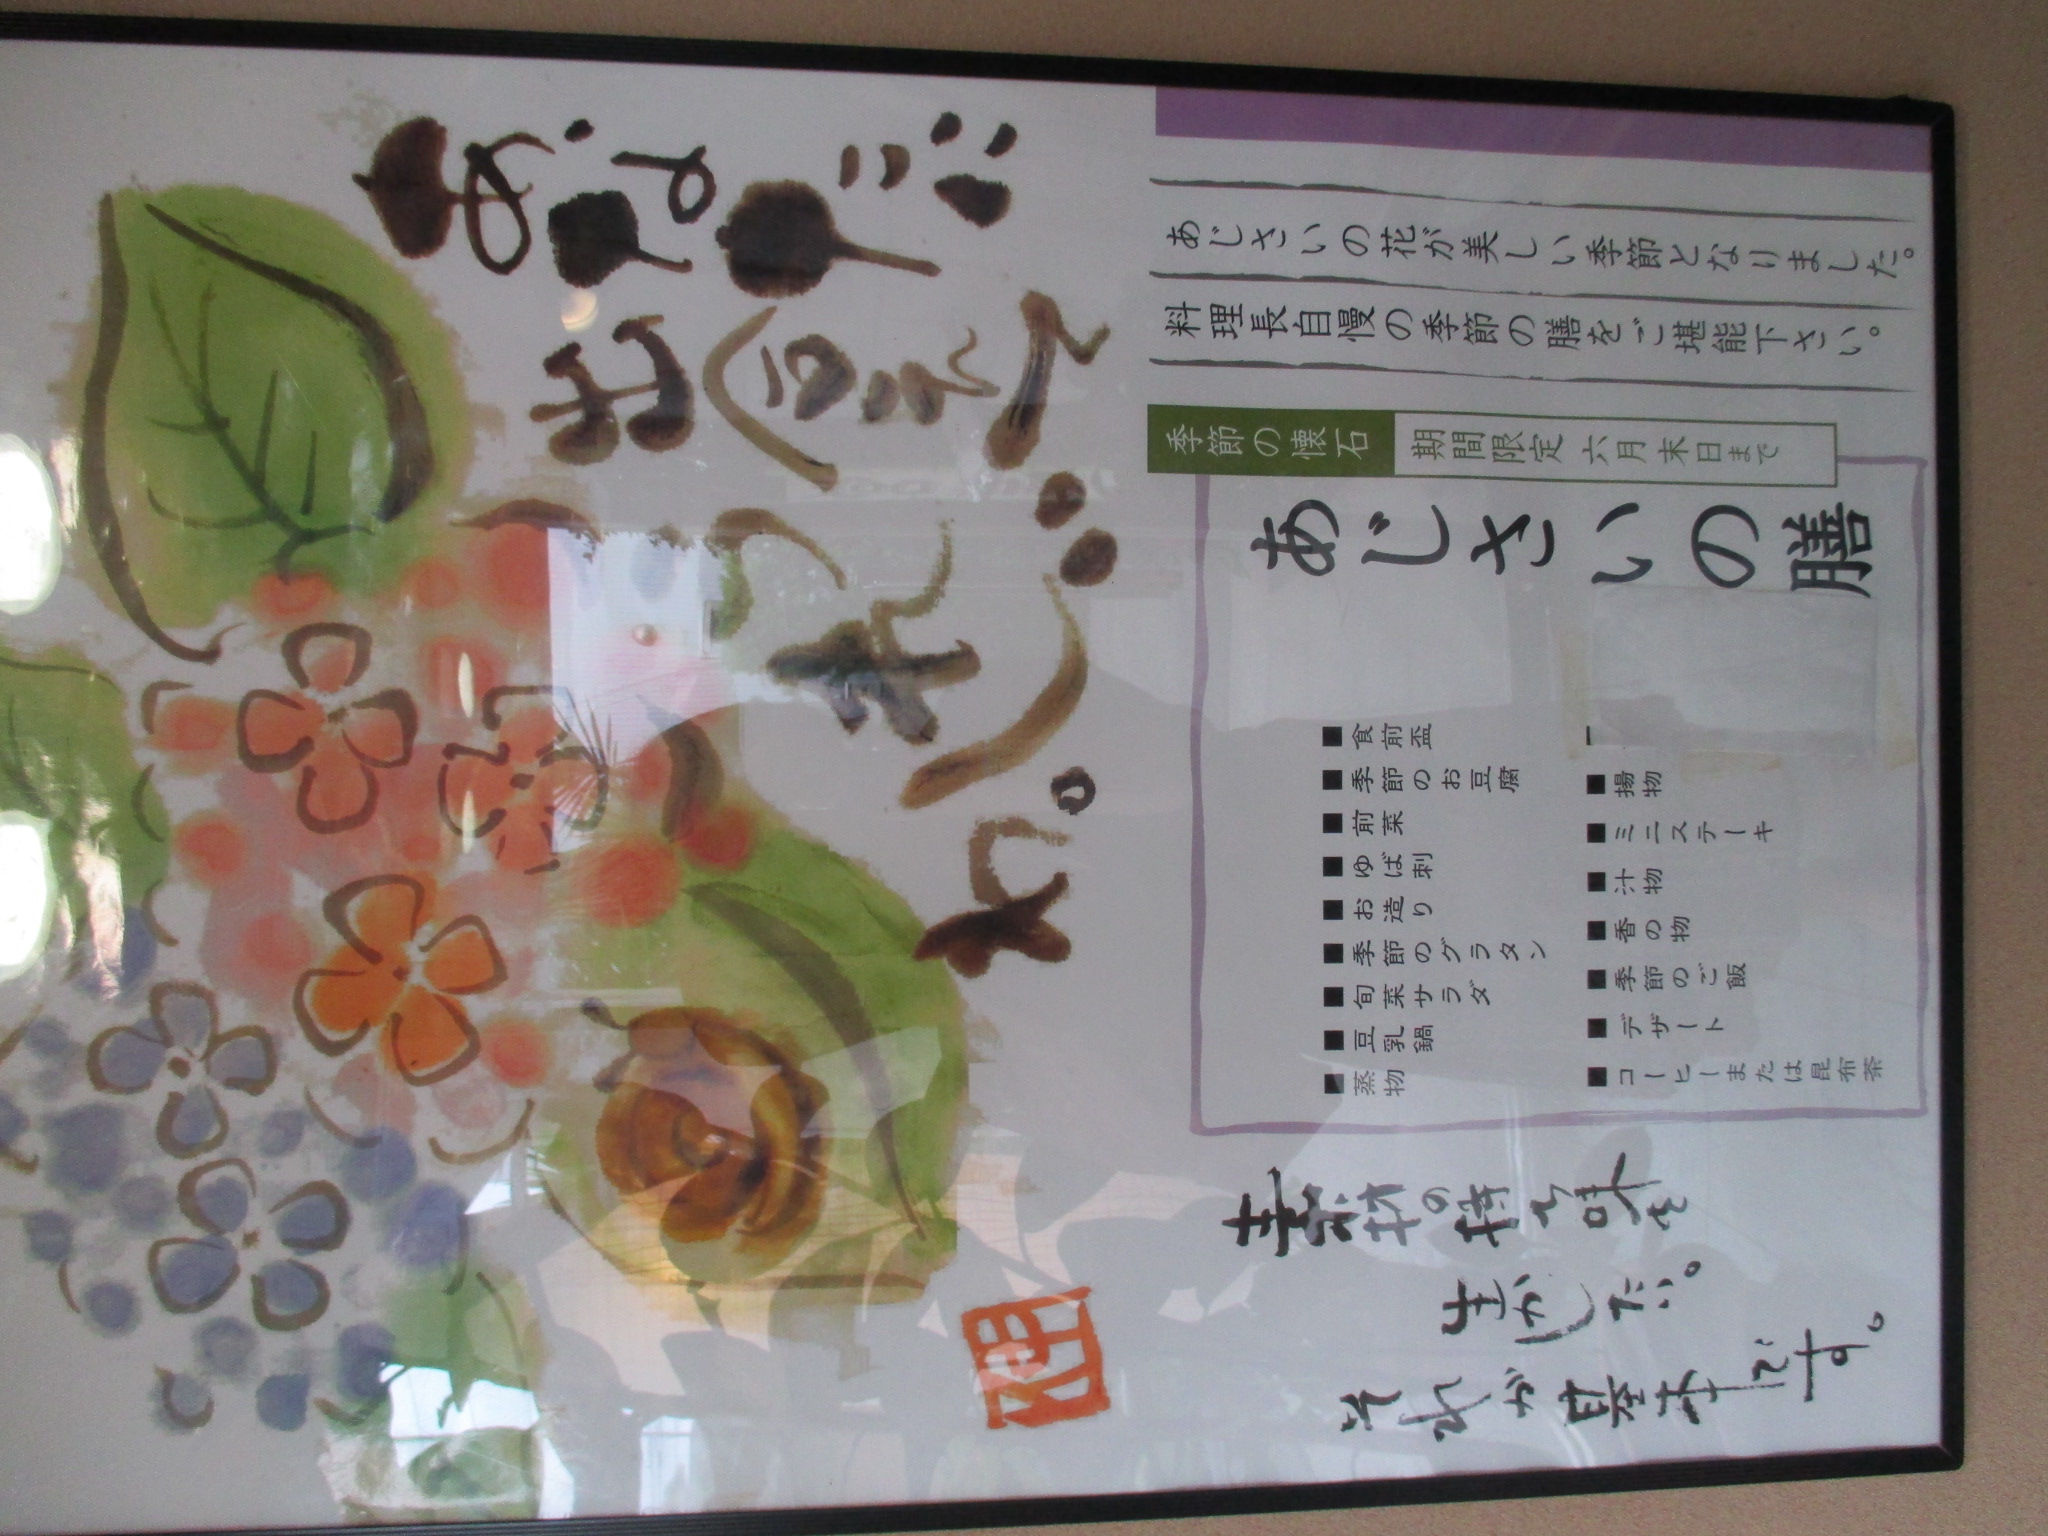 あなたに
出会えて
うれしい
わ。
あじさいの花が美しい季節となりました。
料理長自慢の季節の膳をご堪能下さい。
季節の懐石
期間限定 六月末日まで
あじさいの膳
■食前盃
■季節のお豆腐
■前菜
■ゆば刺
■お造り
■季節のグラタン
■旬菜サラダ
■豆乳鍋
■蒸物
■揚物
■ミニステーキ
■汁物
■香の物
■季節のご飯
■デザート
■コーヒーまたは昆布茶
素材の持ち味を
生かしたい。
それが基本です。